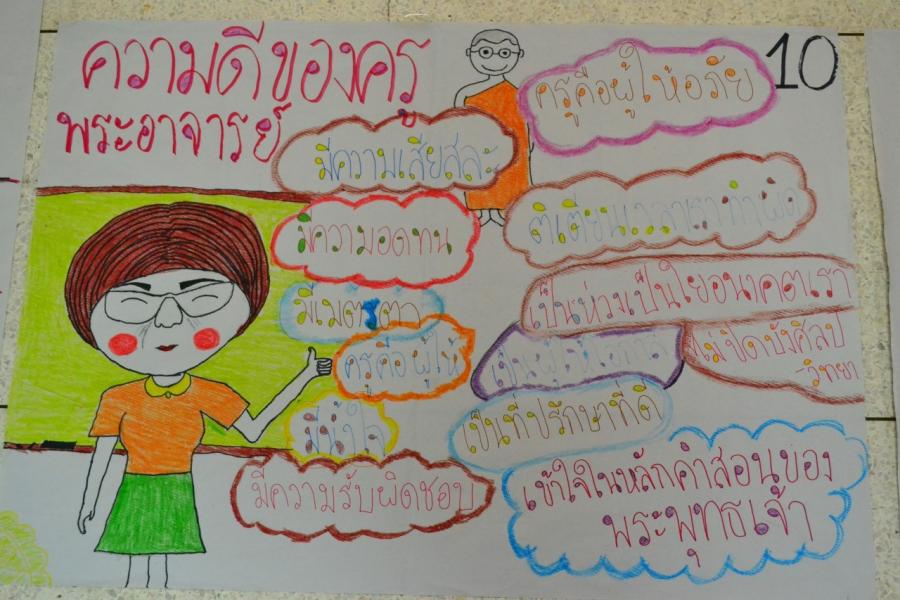 ความดีของครู
พระอาจารย์
10
ครูคือผู้ให้อภัย
มีความเสียสละ
ติเตียนเวลาเราทำผิด
มีความอดทน
เป็นห่วงเป็นใยอนาคตเรา
มีเมตรตา
ไม่ปิดบังศิลป
-วิทยา
ครูคือผู้ให้
เป็นผู้ให้
เป็นที่ปรึกษาที่ดี
มีน้ำใจ
มีความรับผิดชอบ
เข้าใจในหลักคำสอนของ
พระพุทธเจ้า